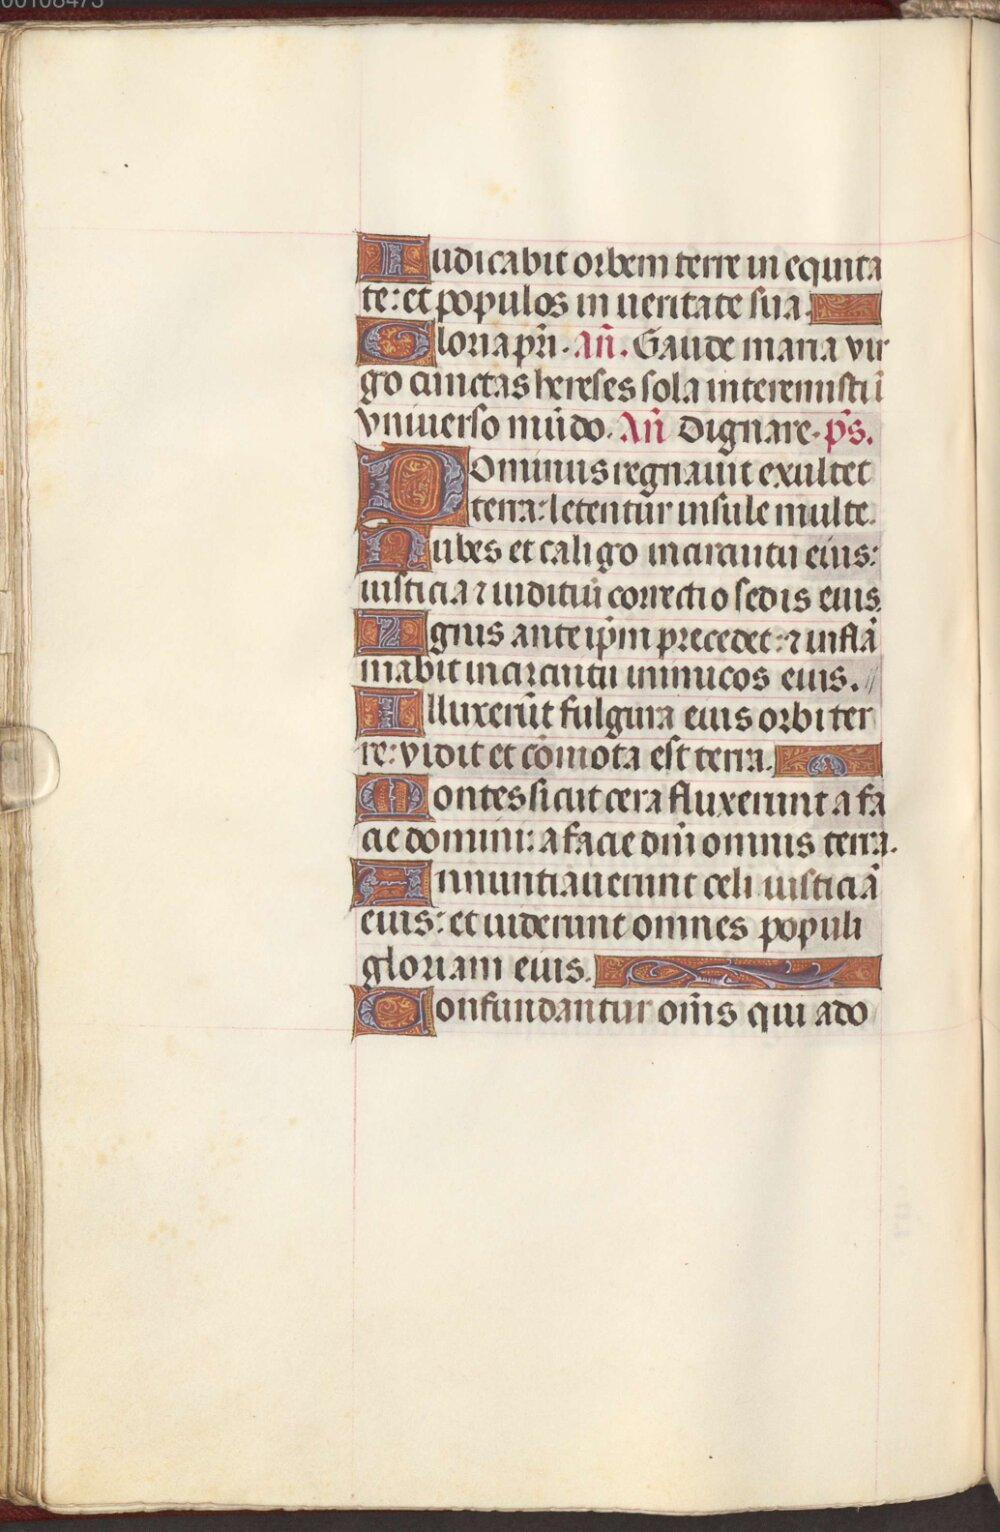 00108473
Iudicabit orbem terre in equita
te: et populos in ueritate sua.
Gloria pr̃i. Añ. Gaude maria vir
go cunctas hereses sola interemisti ĩ
vniuerso mũdo. Añ Dignare. pš.
Dominus regnauit exultet
terra: letentur insule multe.
Nubes et caligo in circuitu eius:
iusticia ⁊ iuditiũ correctio sedis eius.
Ignis ante ip̃m precedet: ⁊ inflã
mabit in circuitu inimicos eius.
Illuxerũt fulgura eius orbi ter
re: vidit et cõmota est terra.
Montes sicut cera fluxerunt a fa
cie domini: a facie dñi omnis terra.
Annuntiauerunt celi iusticiã
eius: et uiderunt omnes populi
gloriam eius.
Confundantur om̃s qui ado